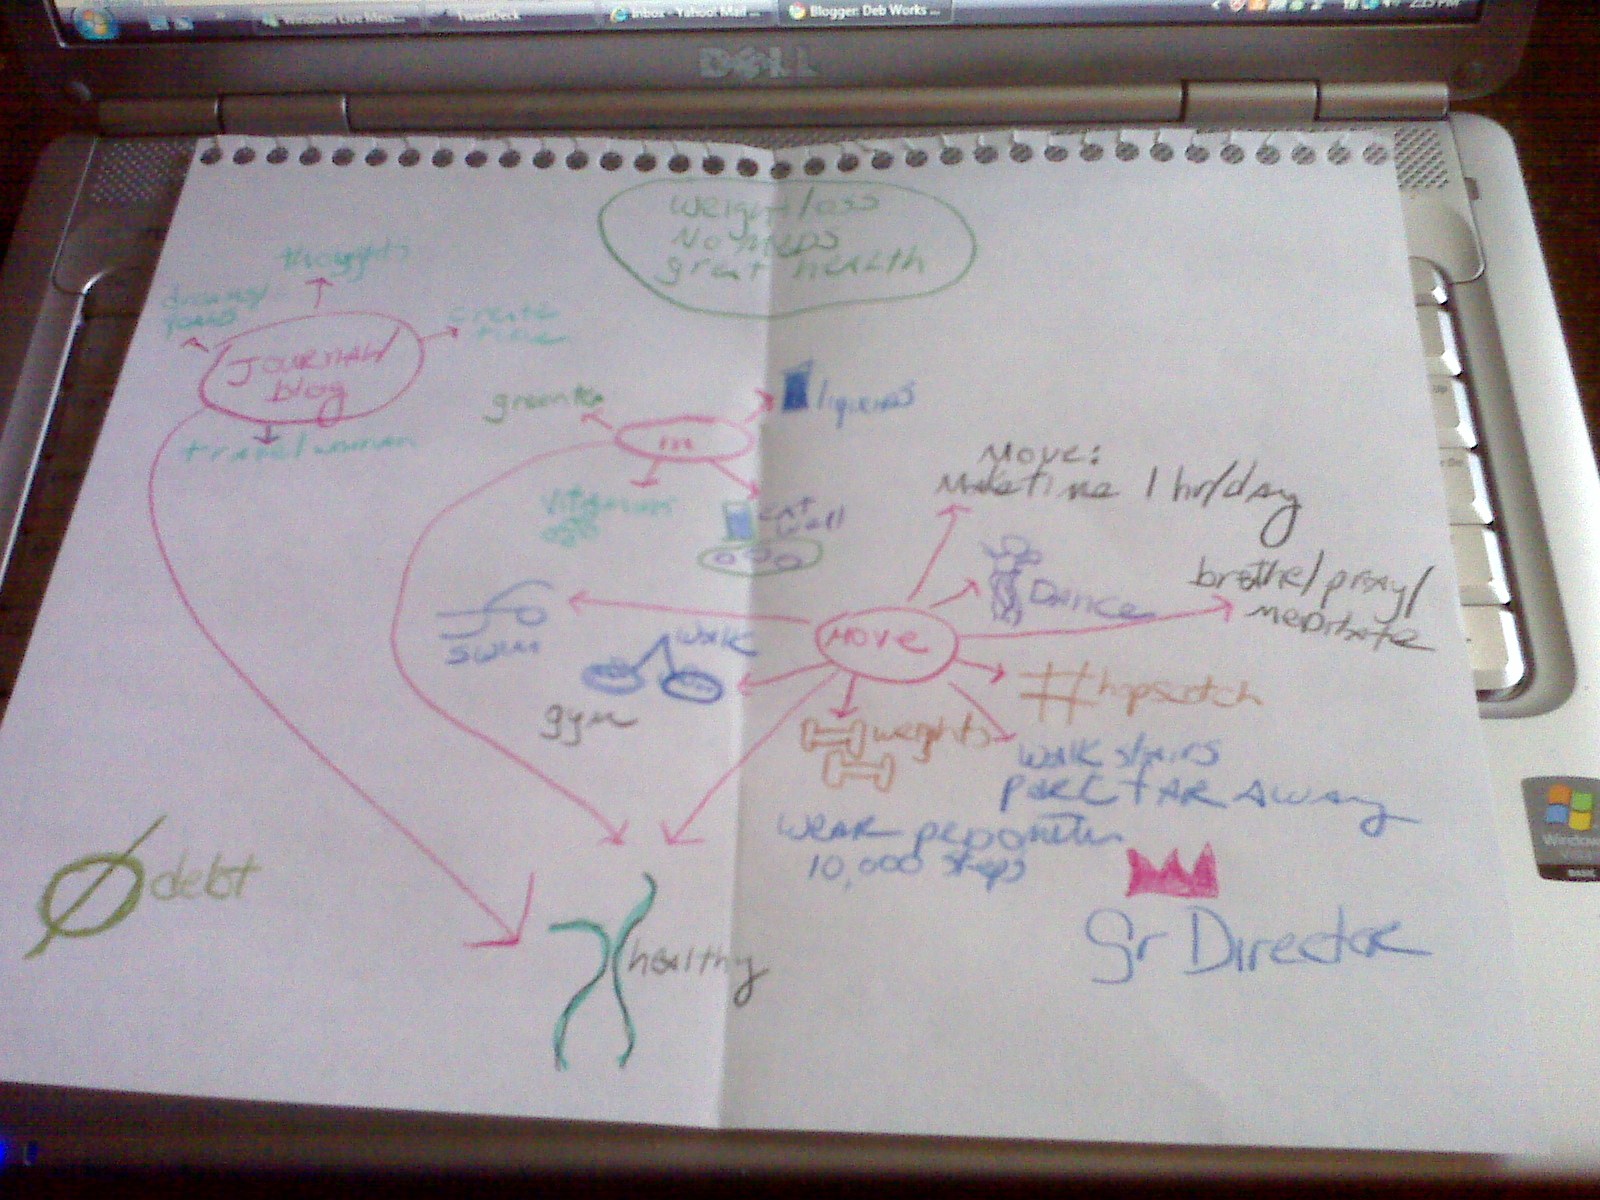 Windows Live Mess...
TweetDeck
Inbox - Yahoo! Mail ...
Blogger: Deb Works ...
2:25 PM
DELL
Weight loss
No meds
great health
thoughts
dreams/
create
time
JOURNAL/
blog
travel/woman
green tea
in
liquids
vitamins
eat
well
Move:
Make time 1 hr/day
Dance
brethe/pray/
meditate
Move
swim
walk
gym
#hopscotch
weights
walk stairs
park far away
wear pedometer
10,000 steps
debt
healthy
Sr Director
Windows
BASIC